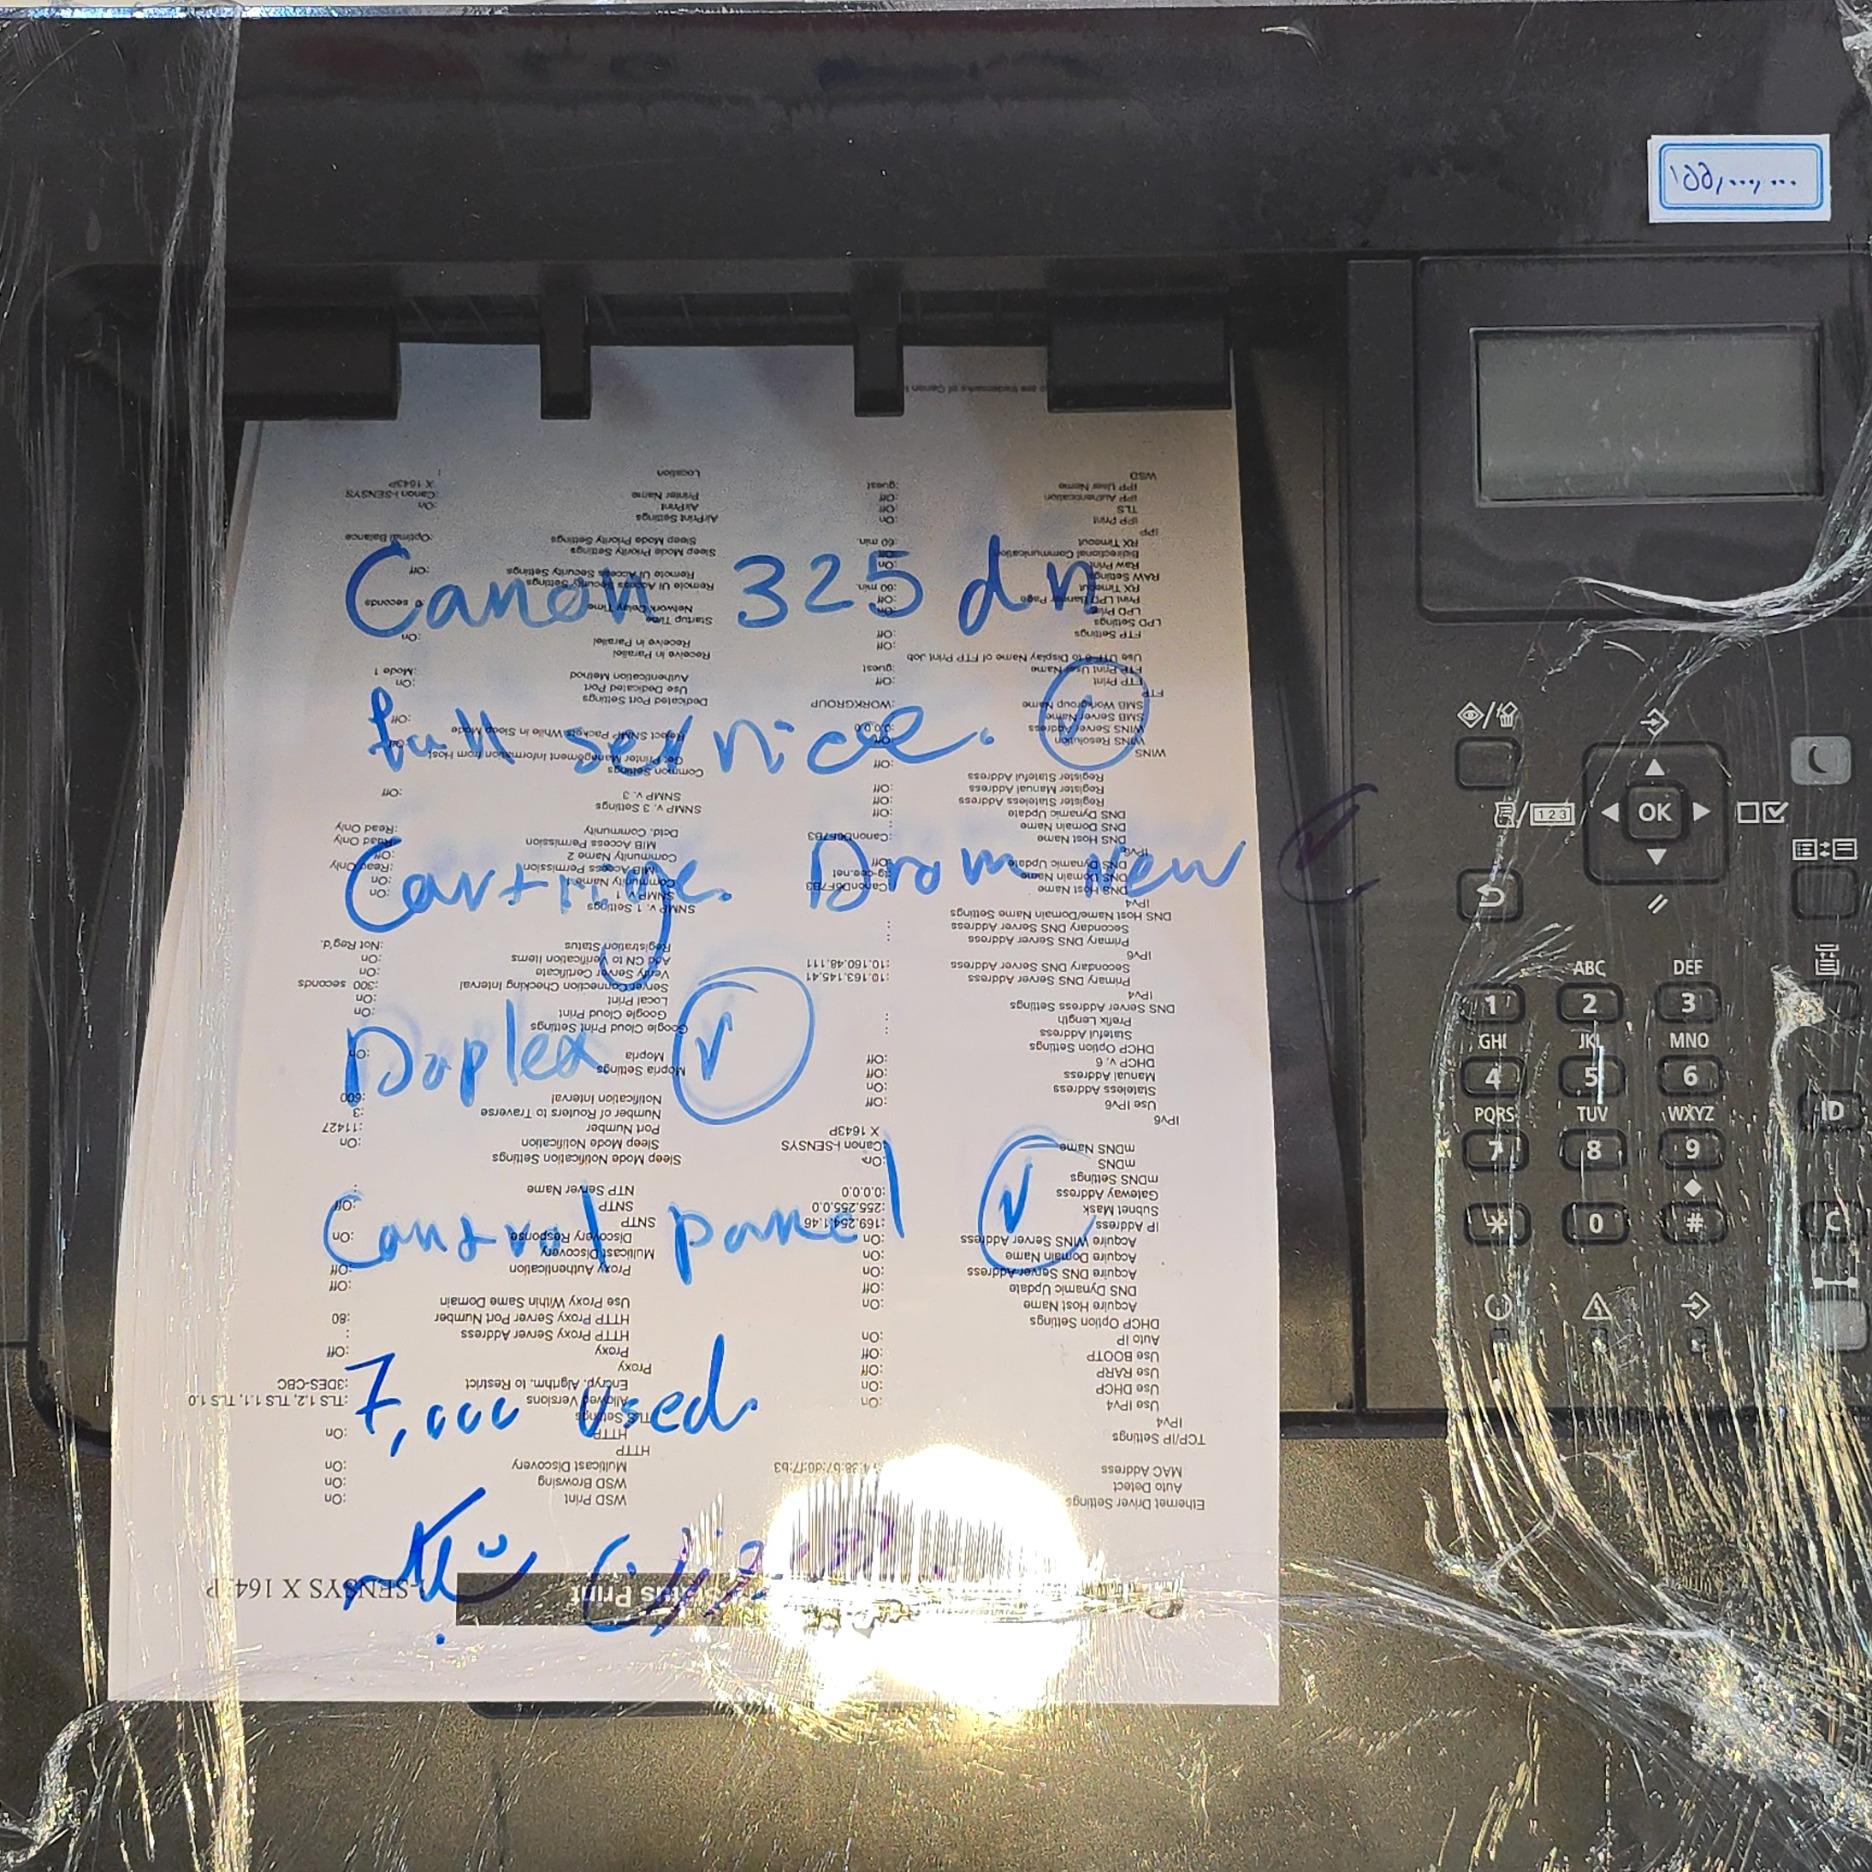 ۱۵۵,۰۰۰,۰۰۰
Canon 325 dn
full service.
Cartrige. Drom new
Duplex
Control panel
7,000 used.
OK
ABC DEF
1 2 3
GHI JKL MNO
4 5 6
PQRS TUV WXYZ
7 8 9
* 0 #
ID
C
i-SENSYS X 1643P
Ethernet Driver Settings
Auto Detect
MAC Address
TCP/IP Settings
IPv4
Use IPv4 :On
Use DHCP :On
Use RARP :Off
Use BOOTP :Off
Auto IP :On
DHCP Option Settings
Acquire Host Name :On
DNS Dynamic Update :Off
Acquire DNS Server Address :On
Acquire Domain Name :On
Acquire WINS Server Address :On
IP Address :169.254.1.46
Subnet Mask :255.255.0.0
Gateway Address :0.0.0.0
mDNS Settings
mDNS :On
mDNS Name Canon i-SENSYS X 1643P
IPv6
Use IPv6 :Off
Stateless Address :On
Manual Address :Off
DHCP v. 6 :Off
DHCP Option Settings
Stateful Address :
Prefix Length :
DNS Server Address Settings
IPv4
Primary DNS Server Address :10.163.145.41
Secondary DNS Server Address :10.160.48.111
IPv6
Primary DNS Server Address :
Secondary DNS Server Address :
DNS Host Name/Domain Name Settings
IPv4
DNS Host Name
DNS Domain Name
DNS Dynamic Update :Off
IPv6
DNS Host Name
DNS Domain Name :
DNS Dynamic Update :Off
Register Stateless Address :Off
Register Manual Address :Off
Register Stateful Address :Off
WINS
WINS Resolution :Off
WINS Server Address :0.0.0.0
SMB Server Name
SMB Workgroup Name :WORKGROUP
FTP
FTP Print :Off
FTP Print User Name :guest
Use UTF-8 to Display Name of FTP Print Job
FTP Settings :Off
LPD Settings
LPD Print
Print LPD Banner Page :Off
RX Timeout :60 min.
RAW Settings
Raw Print :On
Bidirectional Communication
RX Timeout :60 min.
IPP
IPP Print :On
TLS :Off
IPP Authentication :Off
IPP User Name :guest
WSD
WSD Print :On
WSD Browsing :On
Multicast Discovery :On
HTTP
HTTP :On
TLS Settings
Allowed Versions :TLS 1.2, TLS 1.1, TLS 1.0
Encryp. Algrthm. to Restrict :3DES-CBC
Proxy
Proxy :Off
HTTP Proxy Server Address :
HTTP Proxy Server Port Number :80
Use Proxy Within Same Domain :Off
Proxy Authentication :Off
Multicast Discovery
Discovery Response :On
SNTP
SNTP :Off
NTP Server Name :
Sleep Mode Notification Settings
Sleep Mode Notification :On
Port Number :11427
Number of Routers to Traverse :3
Notification Interval :600
Mopria Settings
Mopria :On
Google Cloud Print Settings
Google Cloud Print :On
Local Print :On
Server Connection Checking Interval :300 seconds
Verify Server Certificate :On
Add CN to Verification Items :On
Registration Status :Not Reg'd.
SNMP v. 1 Settings
SNMP v. 1 :On
Community Name 1 :On
MIB Access Permission :Read Only
Community Name 2 :Off
MIB Access Permission :Read Only
Dctd. Community :Read Only
SNMP v. 3 Settings
SNMP v. 3 :Off
Common Settings
Get Printer Management Information from Host
Reject SNMP Packets While in Sleep Mode :Off
Dedicated Port Settings
Use Dedicated Port :On
Authentication Method :Mode 1
Receive in Parallel
Receive in Parallel :On
Startup Time
Network Delay Time seconds
Remote UI Access Security Settings
Remote UI Access Security Settings :Off
Sleep Mode Priority Settings
Sleep Mode Priority Settings :Optimal Balance
AirPrint Settings
AirPrint :On
Printer Name :Canon i-SENSYS X 1643P
Location :
are trademarks of Canon